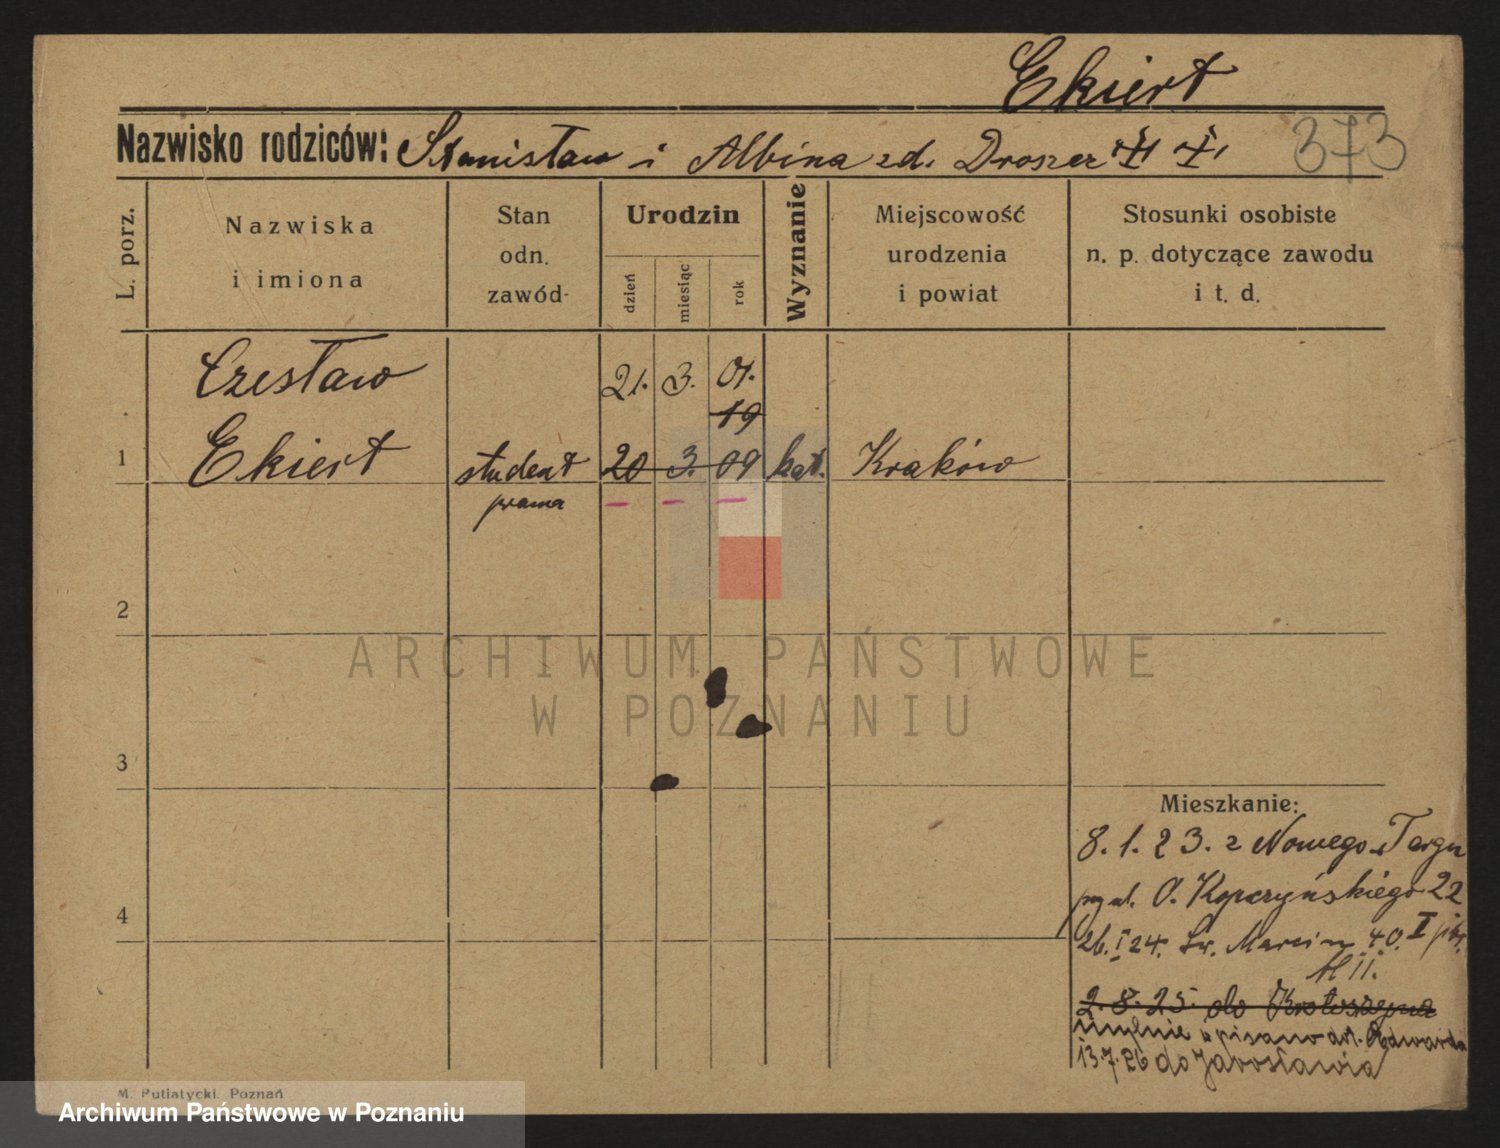 Ekiert
Nazwisko rodziców: Stanisław i Albina zd. Droszcz
373
L. porz.
Nazwiska
i imiona
Stan
odn.
zawód
Urodzin
dzień
miesiąc
rok
Wyznanie
Miejscowość
urodzenia
i powiat
Stosunki osobiste
n. p. dotyczące zawodu
i t. d.
Czesław 21. 3. 01.
19
1 Ekiert student 20 3. 09 kat. Kraków
prawa
2
ARCHIWUM PAŃSTWOWE
W POZNANIU
3
Mieszkanie:
8. 1. 23. z Nowego-Targu
przy ul. O. Kopczyńskiego 22
4
26. I 24. Św. Marcin 40. I ptr.
M 11.
2. 8. 25. do Krotoszyna
mylnie wpisano dot. Edwarda
13.7.26 do Jarosławia
M. Putiatycki, Poznań
Archiwum Państwowe w Poznaniu